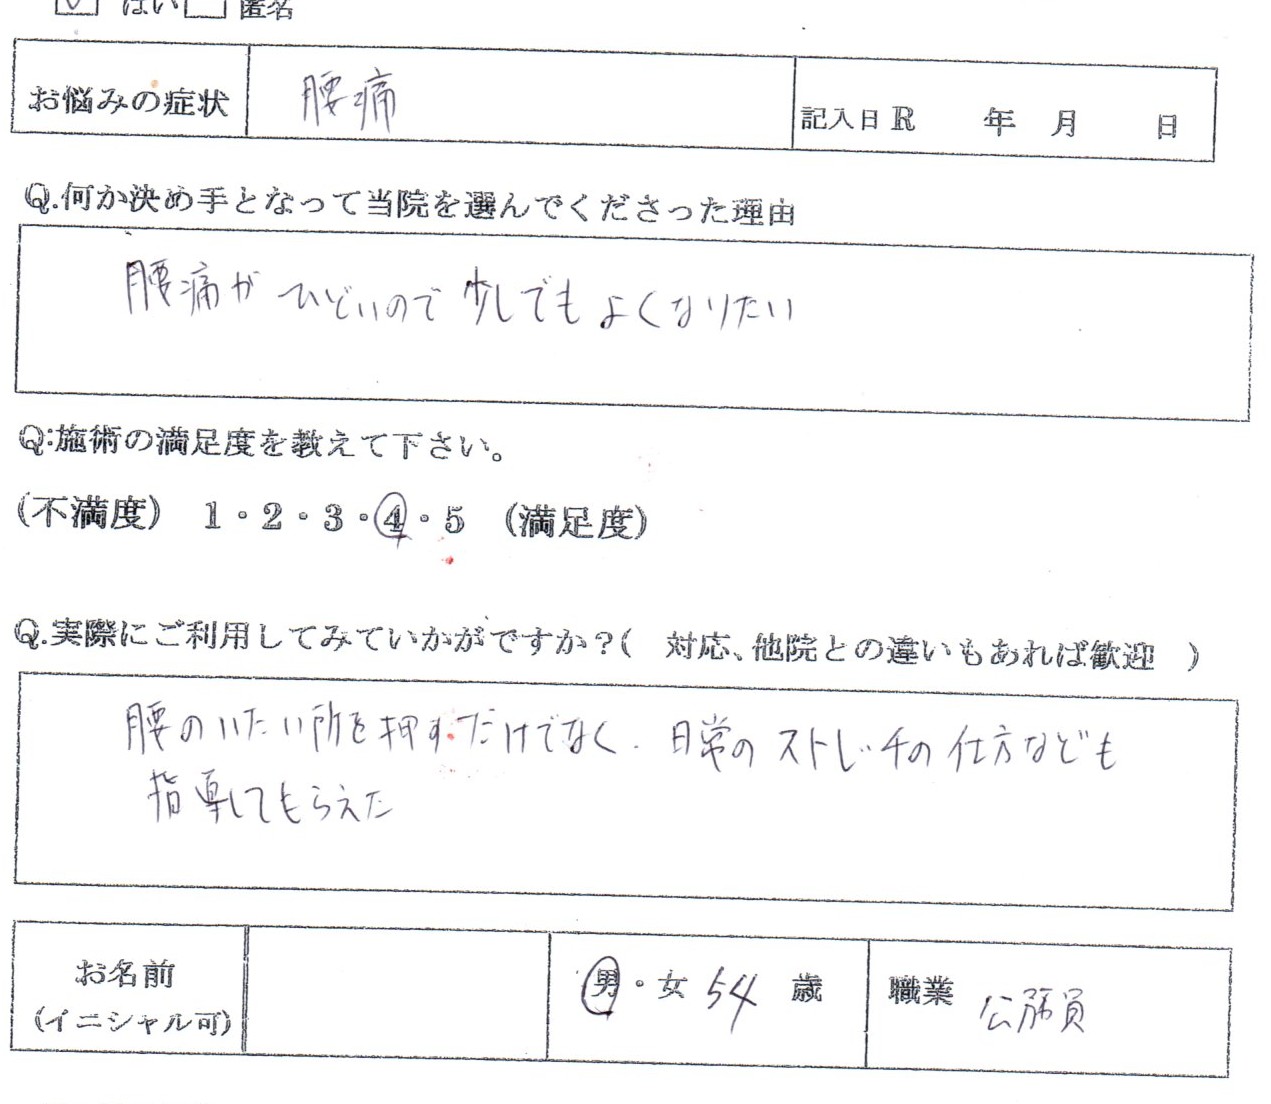 ☑ はい □ 匿名
お悩みの症状 腰痛 記入日 R 年 月 日
Q.何か決め手となって当院を選んでくださった理由
腰痛がひどいので少しでもよくなりたい
Q:施術の満足度を教えて下さい。
(不満度) 1・2・3・4・5 (満足度)
Q.実際にご利用してみていかがですか?( 対応、他院との違いもあれば歓迎 )
腰のいたい所を押すだけでなく、日常のストレッチの仕方なども
指導してもらえた
お名前
(イニシャル可)
男・女 54 歳 職業 公務員